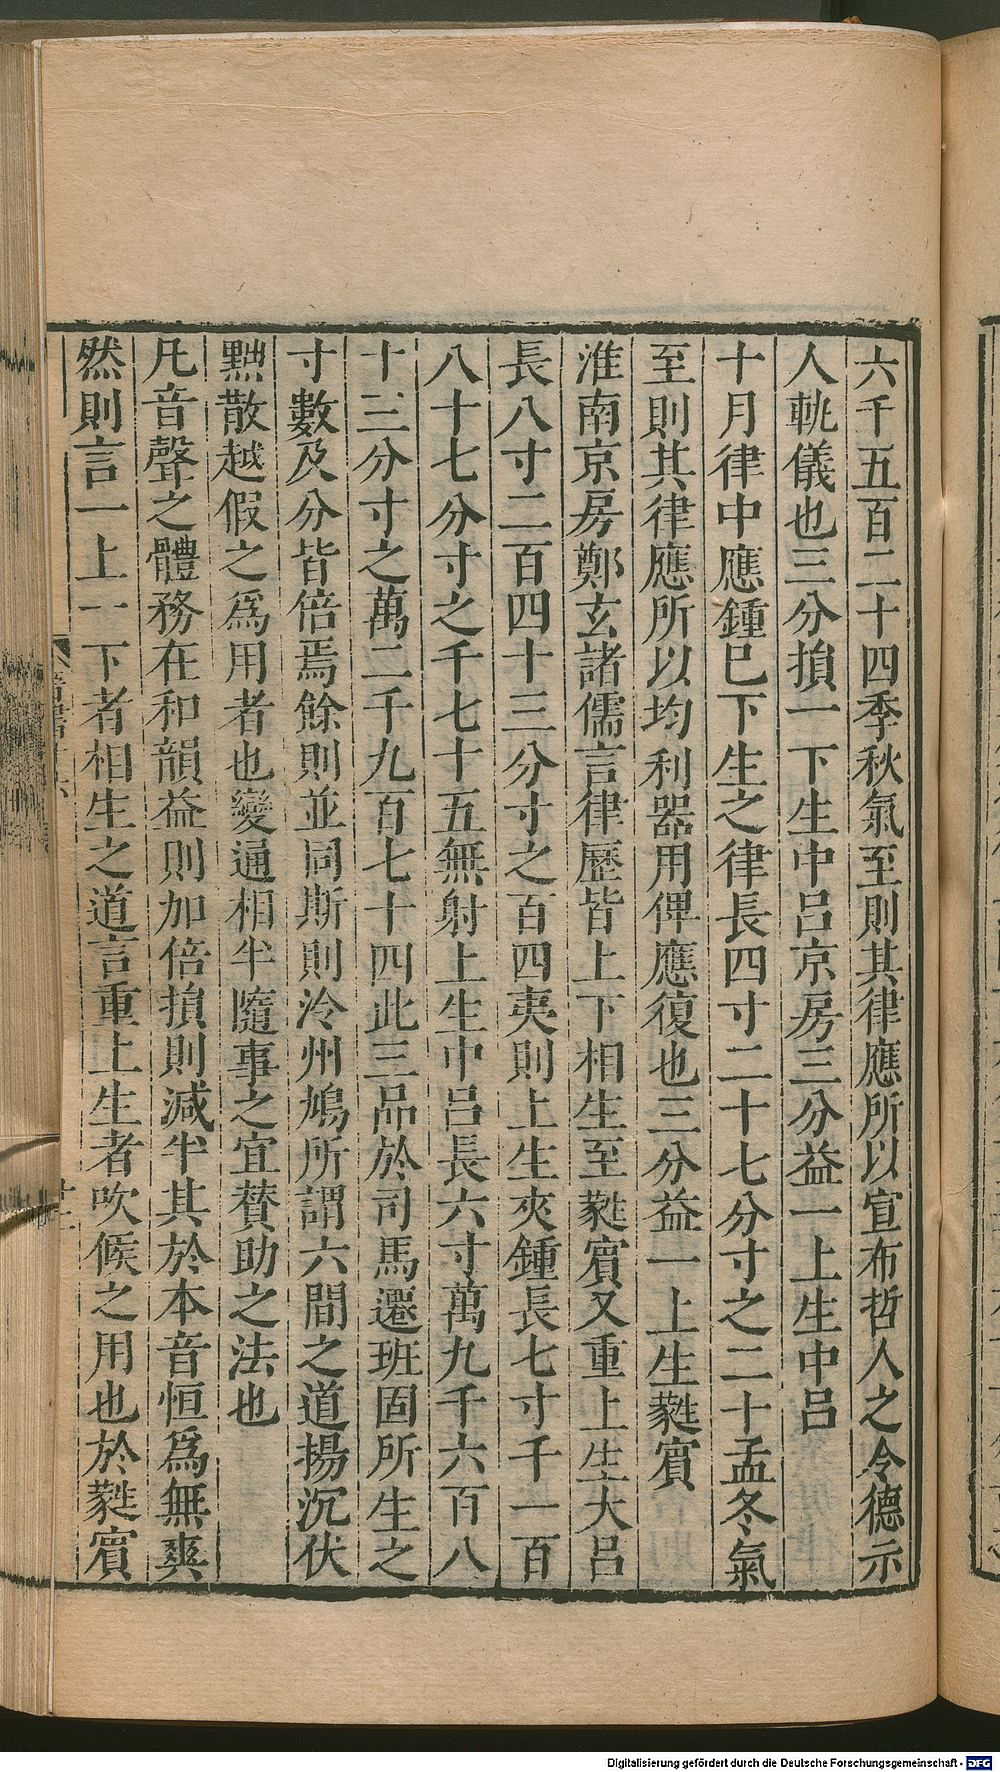 六千五百二十四季秋氣至則其律應所以宣布哲人之令德示
人軌儀也三分損一下生中呂京房三分益一上生中呂
十月律中應鍾巳下生之律長四寸二十七分寸之二十孟冬氣
至則其律應所以均利器用俾應復也三分益一上生蕤賓
淮南京房鄭玄諸儒言律歷皆上下相生至蕤賓又重上生大呂
長八寸二百四十三分寸之百四夷則上生夾鍾長七寸千一百
八十七分寸之千七十五無射上生中呂長六寸萬九千六百八
十三分寸之萬二千九百七十四此三品於司馬遷班固所生之
寸數及分皆倍焉餘則並同斯則泠州鳩所謂六間之道揚沉伏
黜散越假之爲用者也變通相半隨事之宜贊助之法也
凡音聲之體務在和韻益則加倍損則減半其於本音恒爲無爽
然則言一上一下者相生之道言重上生者吹候之用也於蕤賓
Digitalisierung gefördert durch die Deutsche Forschungsgemeinschaft - DFG